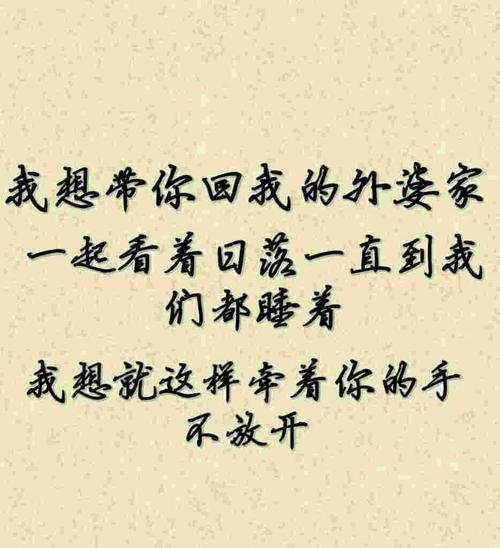 我想带你回我的外婆家
一起看着日落一直到我
们都睡着
我想就这样牵着你的手
不放开